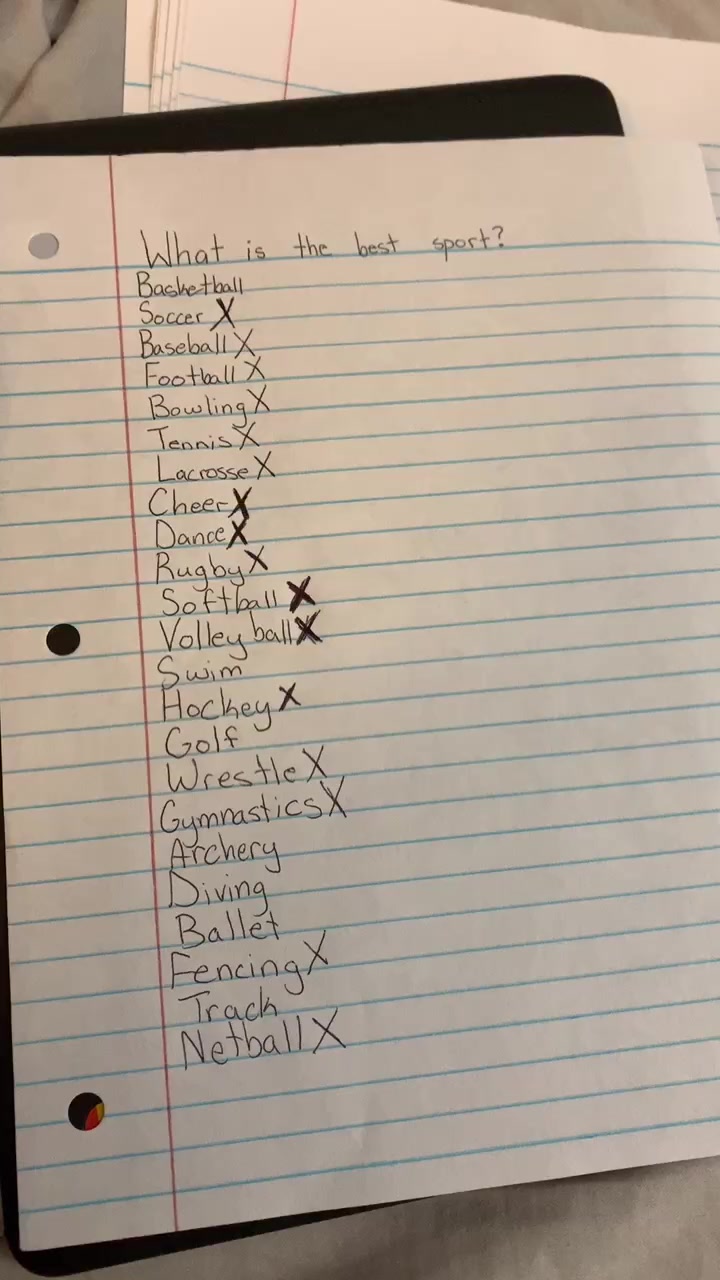 What is the best sport?
Basketball
Soccer X
Baseball X
Football X
Bowling X
Tennis X
Lacrosse X
Cheer X
Dance X
Rugby X
Softball X
Volley ball X
Swim
Hockey X
Golf
Wrestle X
Gymnastics X
Archery
Diving
Ballet
Fencing X
Track
Netball X